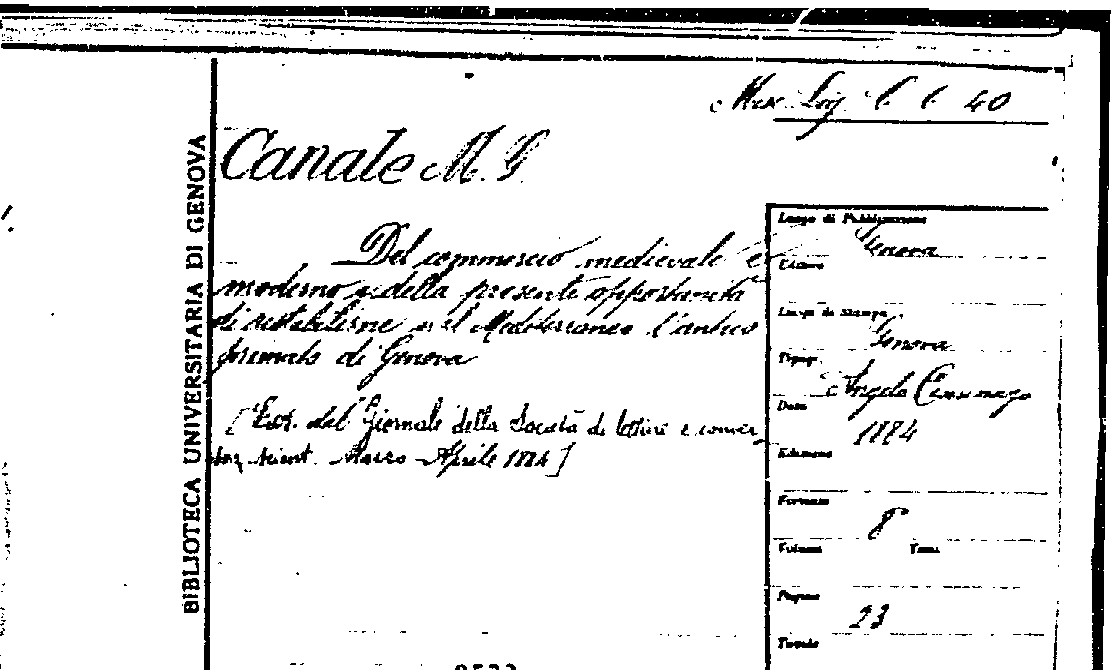 Misc. Lig. C. C. 40
BIBLIOTECA UNIVERSITARIA DI GENOVA
Canale M. G.
Del commercio medievale e
moderno e della presente opportunità
di ristabilirne nel Mediterraneo l'antico
primato di Genova
[Estr. dal Giornale della Società di letture e conver
saz. scient. Marzo-Aprile 1884]
Luogo di Pubblicazione
Genova
Editore
Luogo di Stampa
Genova
Tipogr.
Angelo Ciminago
Data
1884
Edizione
Formato
8°
Volume Tomo
Pagine
23
Tavole